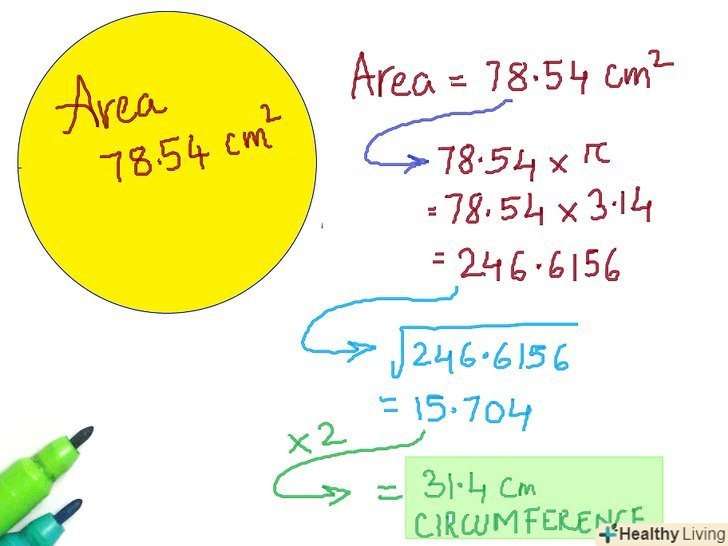 Area
78.54 cm²
Area = 78.54 cm²
78.54 x π
= 78.54 x 3.14
= 246.6156
√246.6156
= 15.704
x 2
= 31.4 cm
CIRCUMFERENCE
Healthy Living